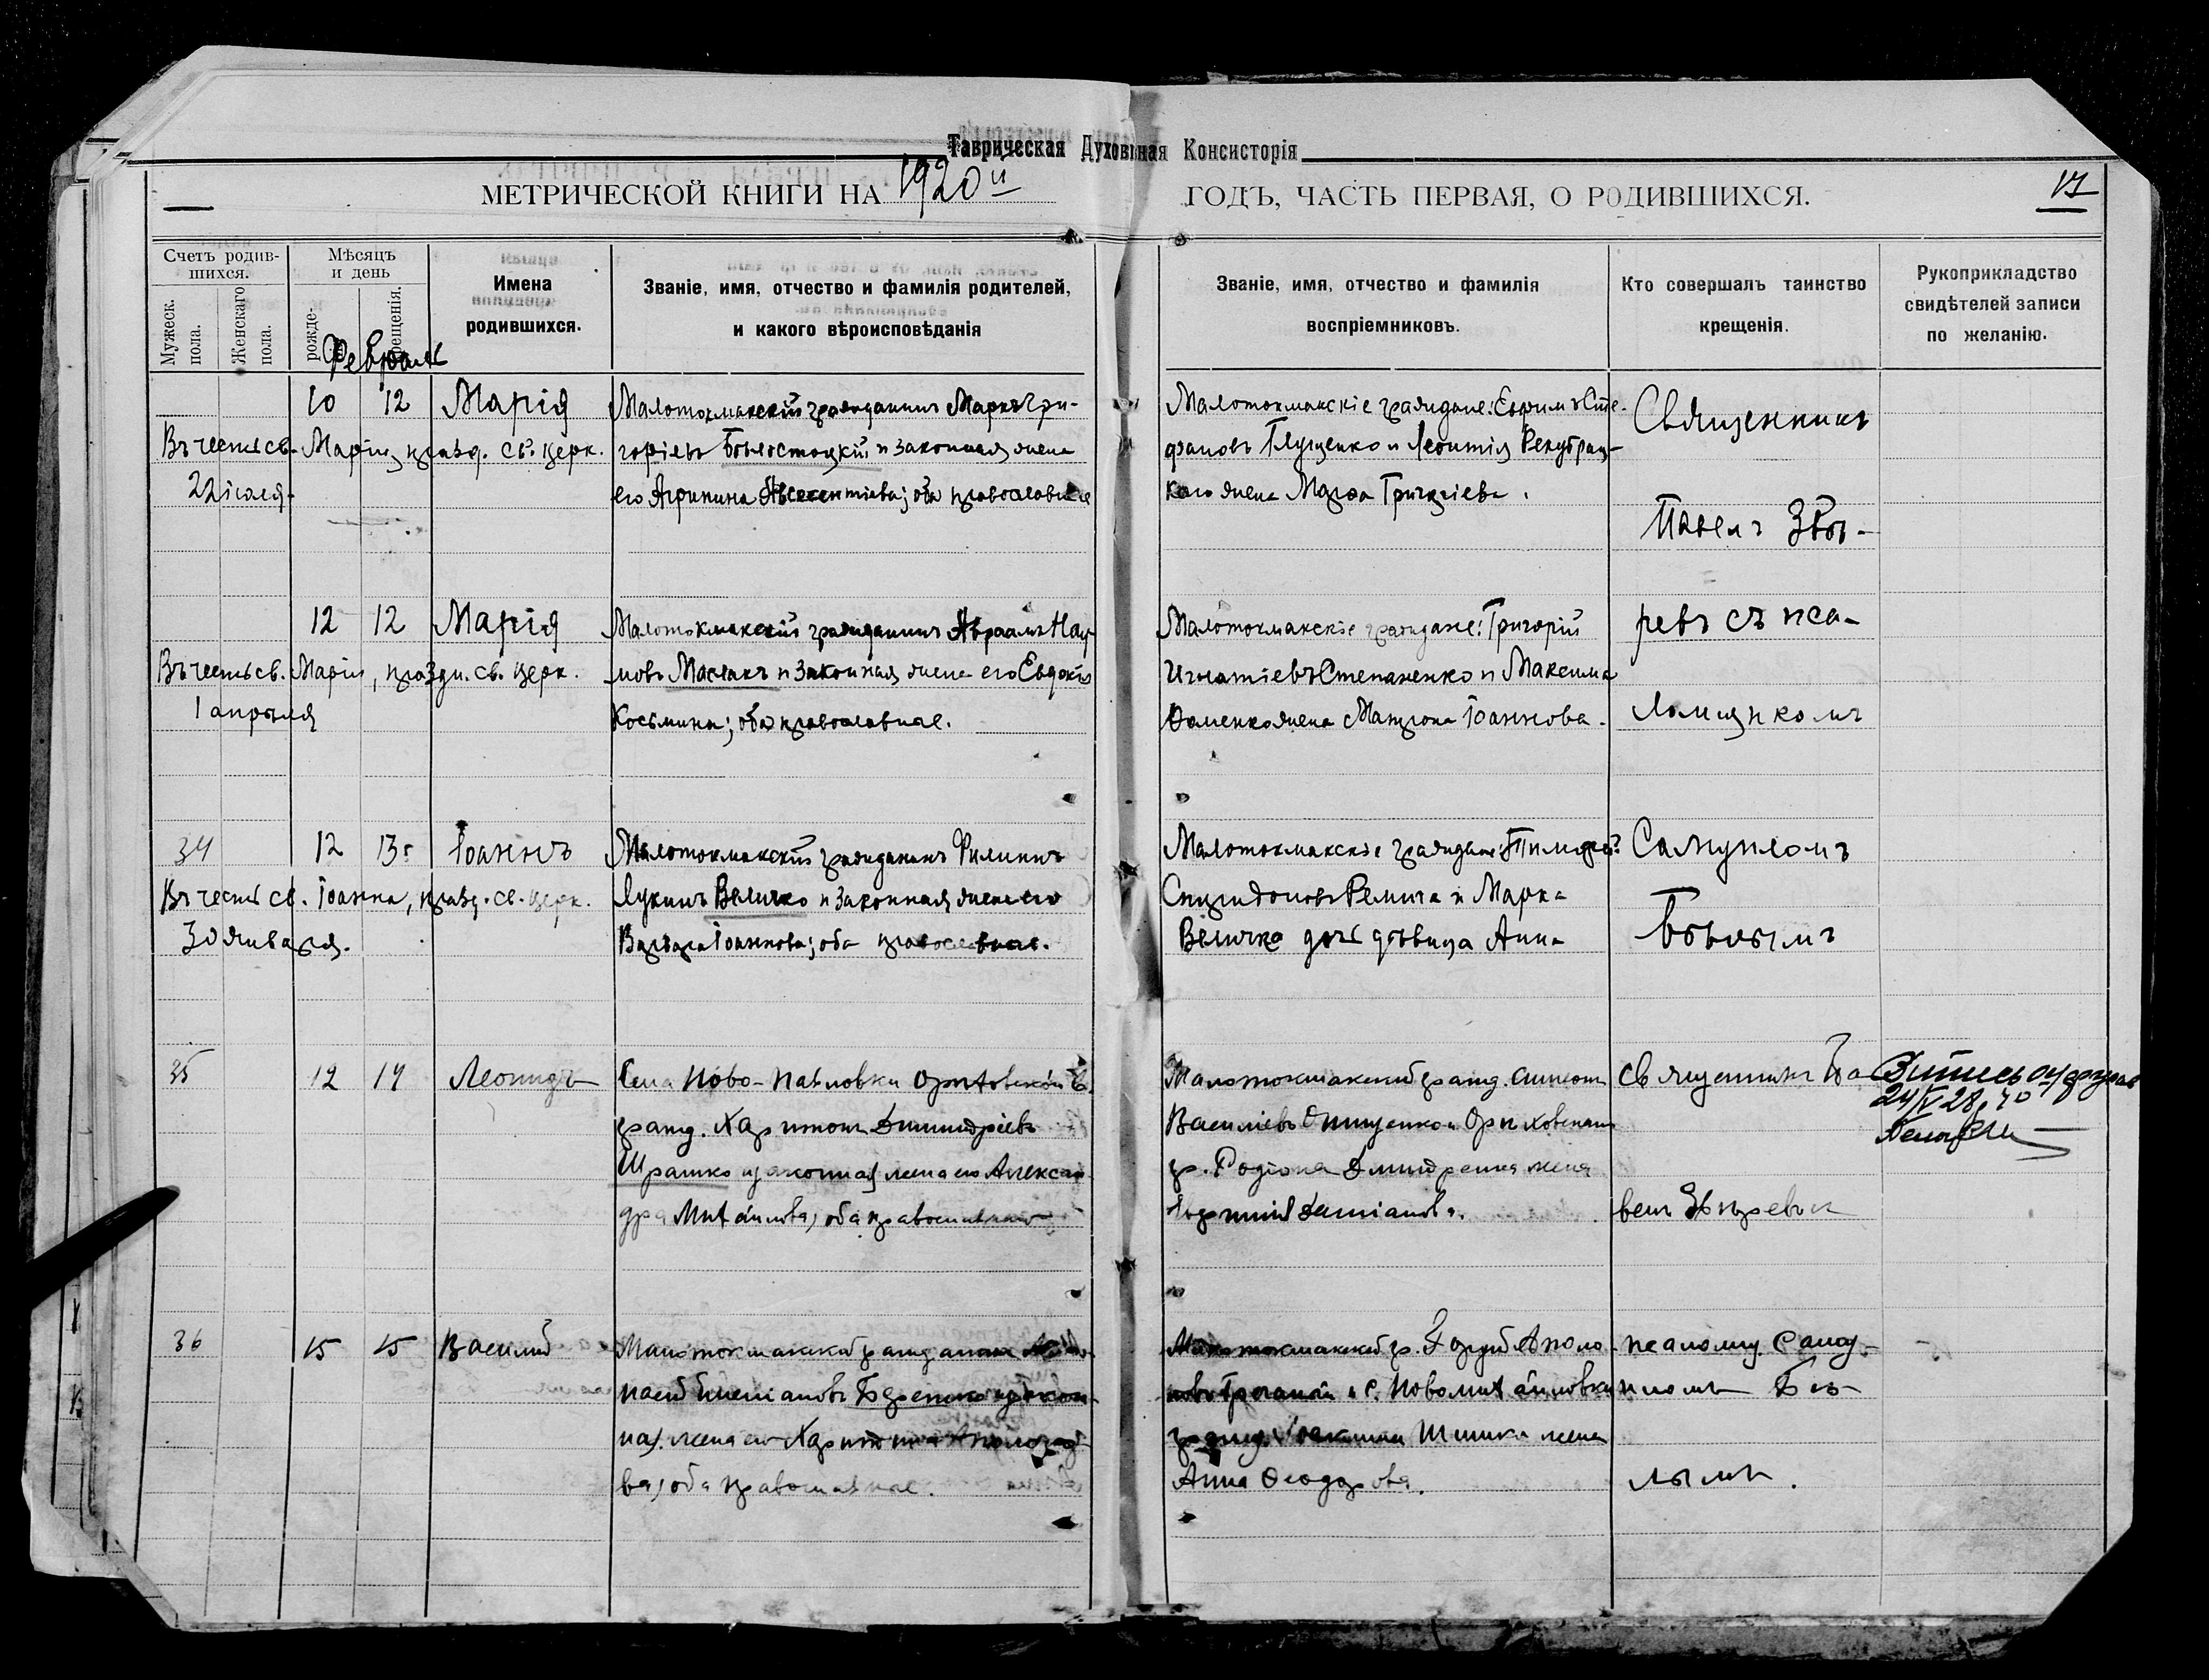 Таврическая Духовная Консисторія
МЕТРИЧЕСКОЙ КНИГИ НА 1920й ГОДЪ, ЧАСТЬ ПЕРВАЯ, О РОДИВШИХСЯ.
17
Счетъ родив-
шихся.
Мужеск.
пола.
Женскаго
пола.
Мѣсяцъ
и день
рожде-
крещенія.
Имена
родившихся.
Званіе, имя, отчество и фамилія родителей,
и какого вѣроисповѣданія
Званіе, имя, отчество и фамилія
воспріемниковъ.
Кто совершалъ таинство
крещенія.
Рукоприкладство
свидѣтелей записи
по желанію.
Февраль
10 12 Марія
Въ честь св. Маріи, празд. св. церк.
22 іюля
Малотокмакскій гражданинъ Маркъ Гри-
горіевъ Бѣлостоцкій и законная жена
его Агрипина Авксентіева; оба православные
Малотокмакскіе граждане: Ефимъ Сте-
фановъ Глущенко и Леонтія
жена Марфа
Священникъ
Павелъ Звѣ-
12 12 Марія
Въ честь св. Маріи, праздн. св. церк.
1 апрѣля
Малотокмакскій гражданинъ Авраамъ Нау-
мовъ Маслакъ и законная жена его Евдокія
Косьмина; оба православные.
Малотокмакскіе граждане: Григорій
Игнатіевъ Степаненко и Максима
Фоменко жена Матрона Іоаннова.
ревъ съ пса-
ломщикомъ
34 12 13 Іоаннъ
Въ честь св. Іоанна, празд. св. церк.
30 января.
Малотокмакскій гражданинъ Филиппъ
Лукинъ Величко и законная жена его
Варвара Іоаннова; оба православные.
Малотокмакскіе граждане: Тимофей
Спиридоновъ Ремига и Марка
Величка дочь дѣвица Анна
Самуиломъ
Бѣлымъ
35 12 14 Леонидъ
Села Ново-Павловки Орѣховской в.
гражд. Харитонъ Димитріевъ
Шрамко и законная жена его Алексан-
дра Михаилова, оба православные
Малотокмакскій гражд. Симеонъ
Василіевъ Онищенко и Орѣховскаго
гр. Родіона жена
Даміанова.
священникъ Па-
велъ Звѣревъ и
24/V 28.
36 15 15 Василій
Малотокмакскій гражданинъ
законо-
ная жена его Харитина
ва, оба православные.
Малотокмакскій гр.
и с. Новомихайловки
гражд. жена
Анна Ѳеодорова.
псалому. Саму-
иломъ Бѣ-
лымъ.